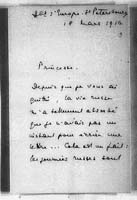 Hôtel d'Europe St Pétersbourg
18 mars 1914
Princesse,
Depuis que je vous ai
quitté, la vie russe
m'a tellement absorbé
que je n'avais pas un
instant pour écrire une
lettre... Cela est un fait:
les journées russes sont